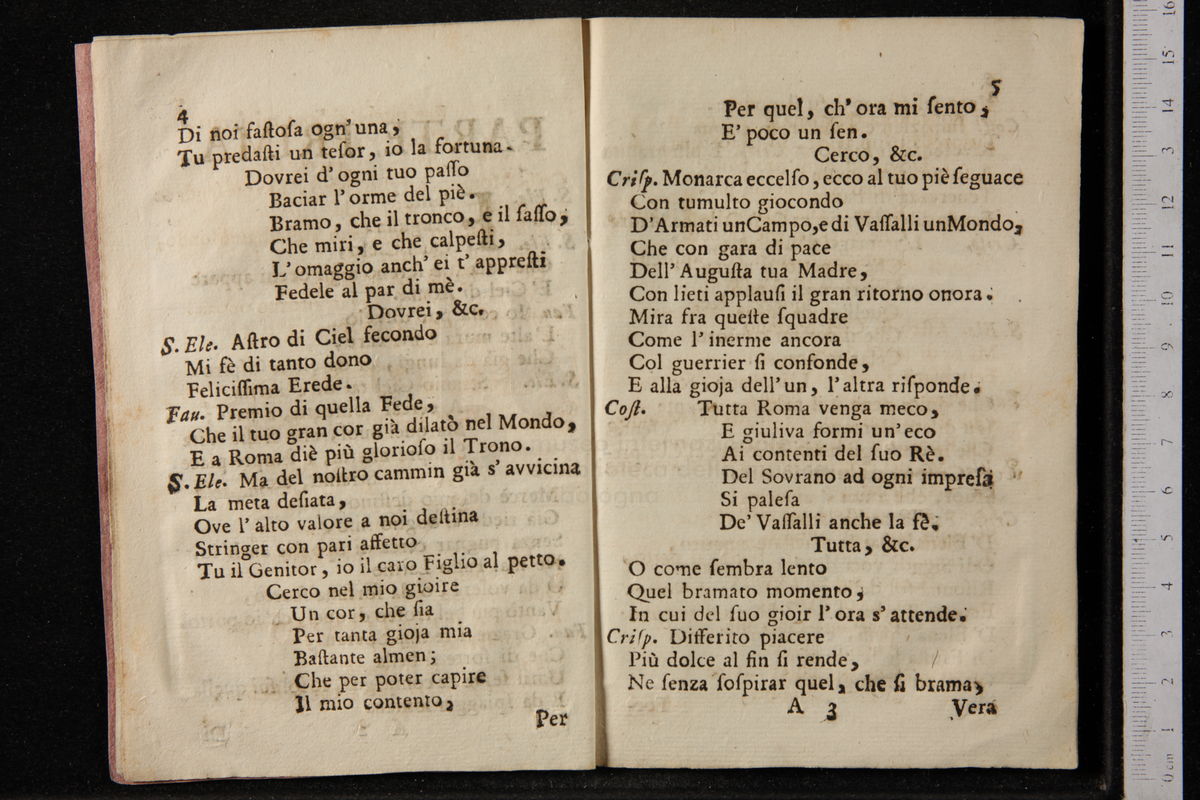 4
Di noi faſtoſa ogn' una,
Tu predaſti un teſor, io la fortuna.
Dovrei d' ogni tuo paſſo
Baciar l' orme del piè.
Bramo, che il tronco, e il ſaſſo,
Che miri, e che calpeſti,
L' omaggio anch' ei t' appreſti
Fedele al par di mè.
Dovrei, &c.
S. Ele. Aſtro di Ciel fecondo
Mi fè di tanto dono
Feliciſſima Erede.
Fau. Premio di quella Fede,
Che il tuo gran cor già dilatò nel Mondo,
E a Roma diè più glorioſo il Trono.
S. Ele. Ma del noſtro cammin già s' avvicina
La meta deſiata,
Ove l' alto valore a noi deſtina
Stringer con pari affetto
Tu il Genitor, io il caro Figlio al petto.
Cerco nel mio gioire
Un cor, che ſia
Per tanta gioja mia
Baſtante almen;
Che per poter capire
Il mio contento,
Per
5
Per quel, ch' ora mi ſento,
E' poco un ſen.
Cerco, &c.
Criſp. Monarca eccelſo, ecco al tuo piè ſeguace
Con tumulto giocondo
D'Armati un Campo, e di Vaſſalli un Mondo,
Che con gara di pace
Dell' Auguſta tua Madre,
Con lieti applauſi il gran ritorno onora.
Mira fra queſte ſquadre
Come l' inerme ancora
Col guerrier ſi confonde,
E alla gioja dell' un, l' altra riſponde.
Coſt. Tutta Roma venga meco,
E giuliva formi un' eco
Ai contenti del ſuo Rè.
Del Sovrano ad ogni impreſa
Si paleſa
De' Vaſſalli anche la fè.
Tutta, &c.
O come ſembra lento
Quel bramato momento,
In cui del ſuo gioir l' ora s' attende.
Criſp. Differito piacere
Più dolce al fin ſi rende,
Ne ſenza ſoſpirar quel, che ſi brama,
A 3 Vera